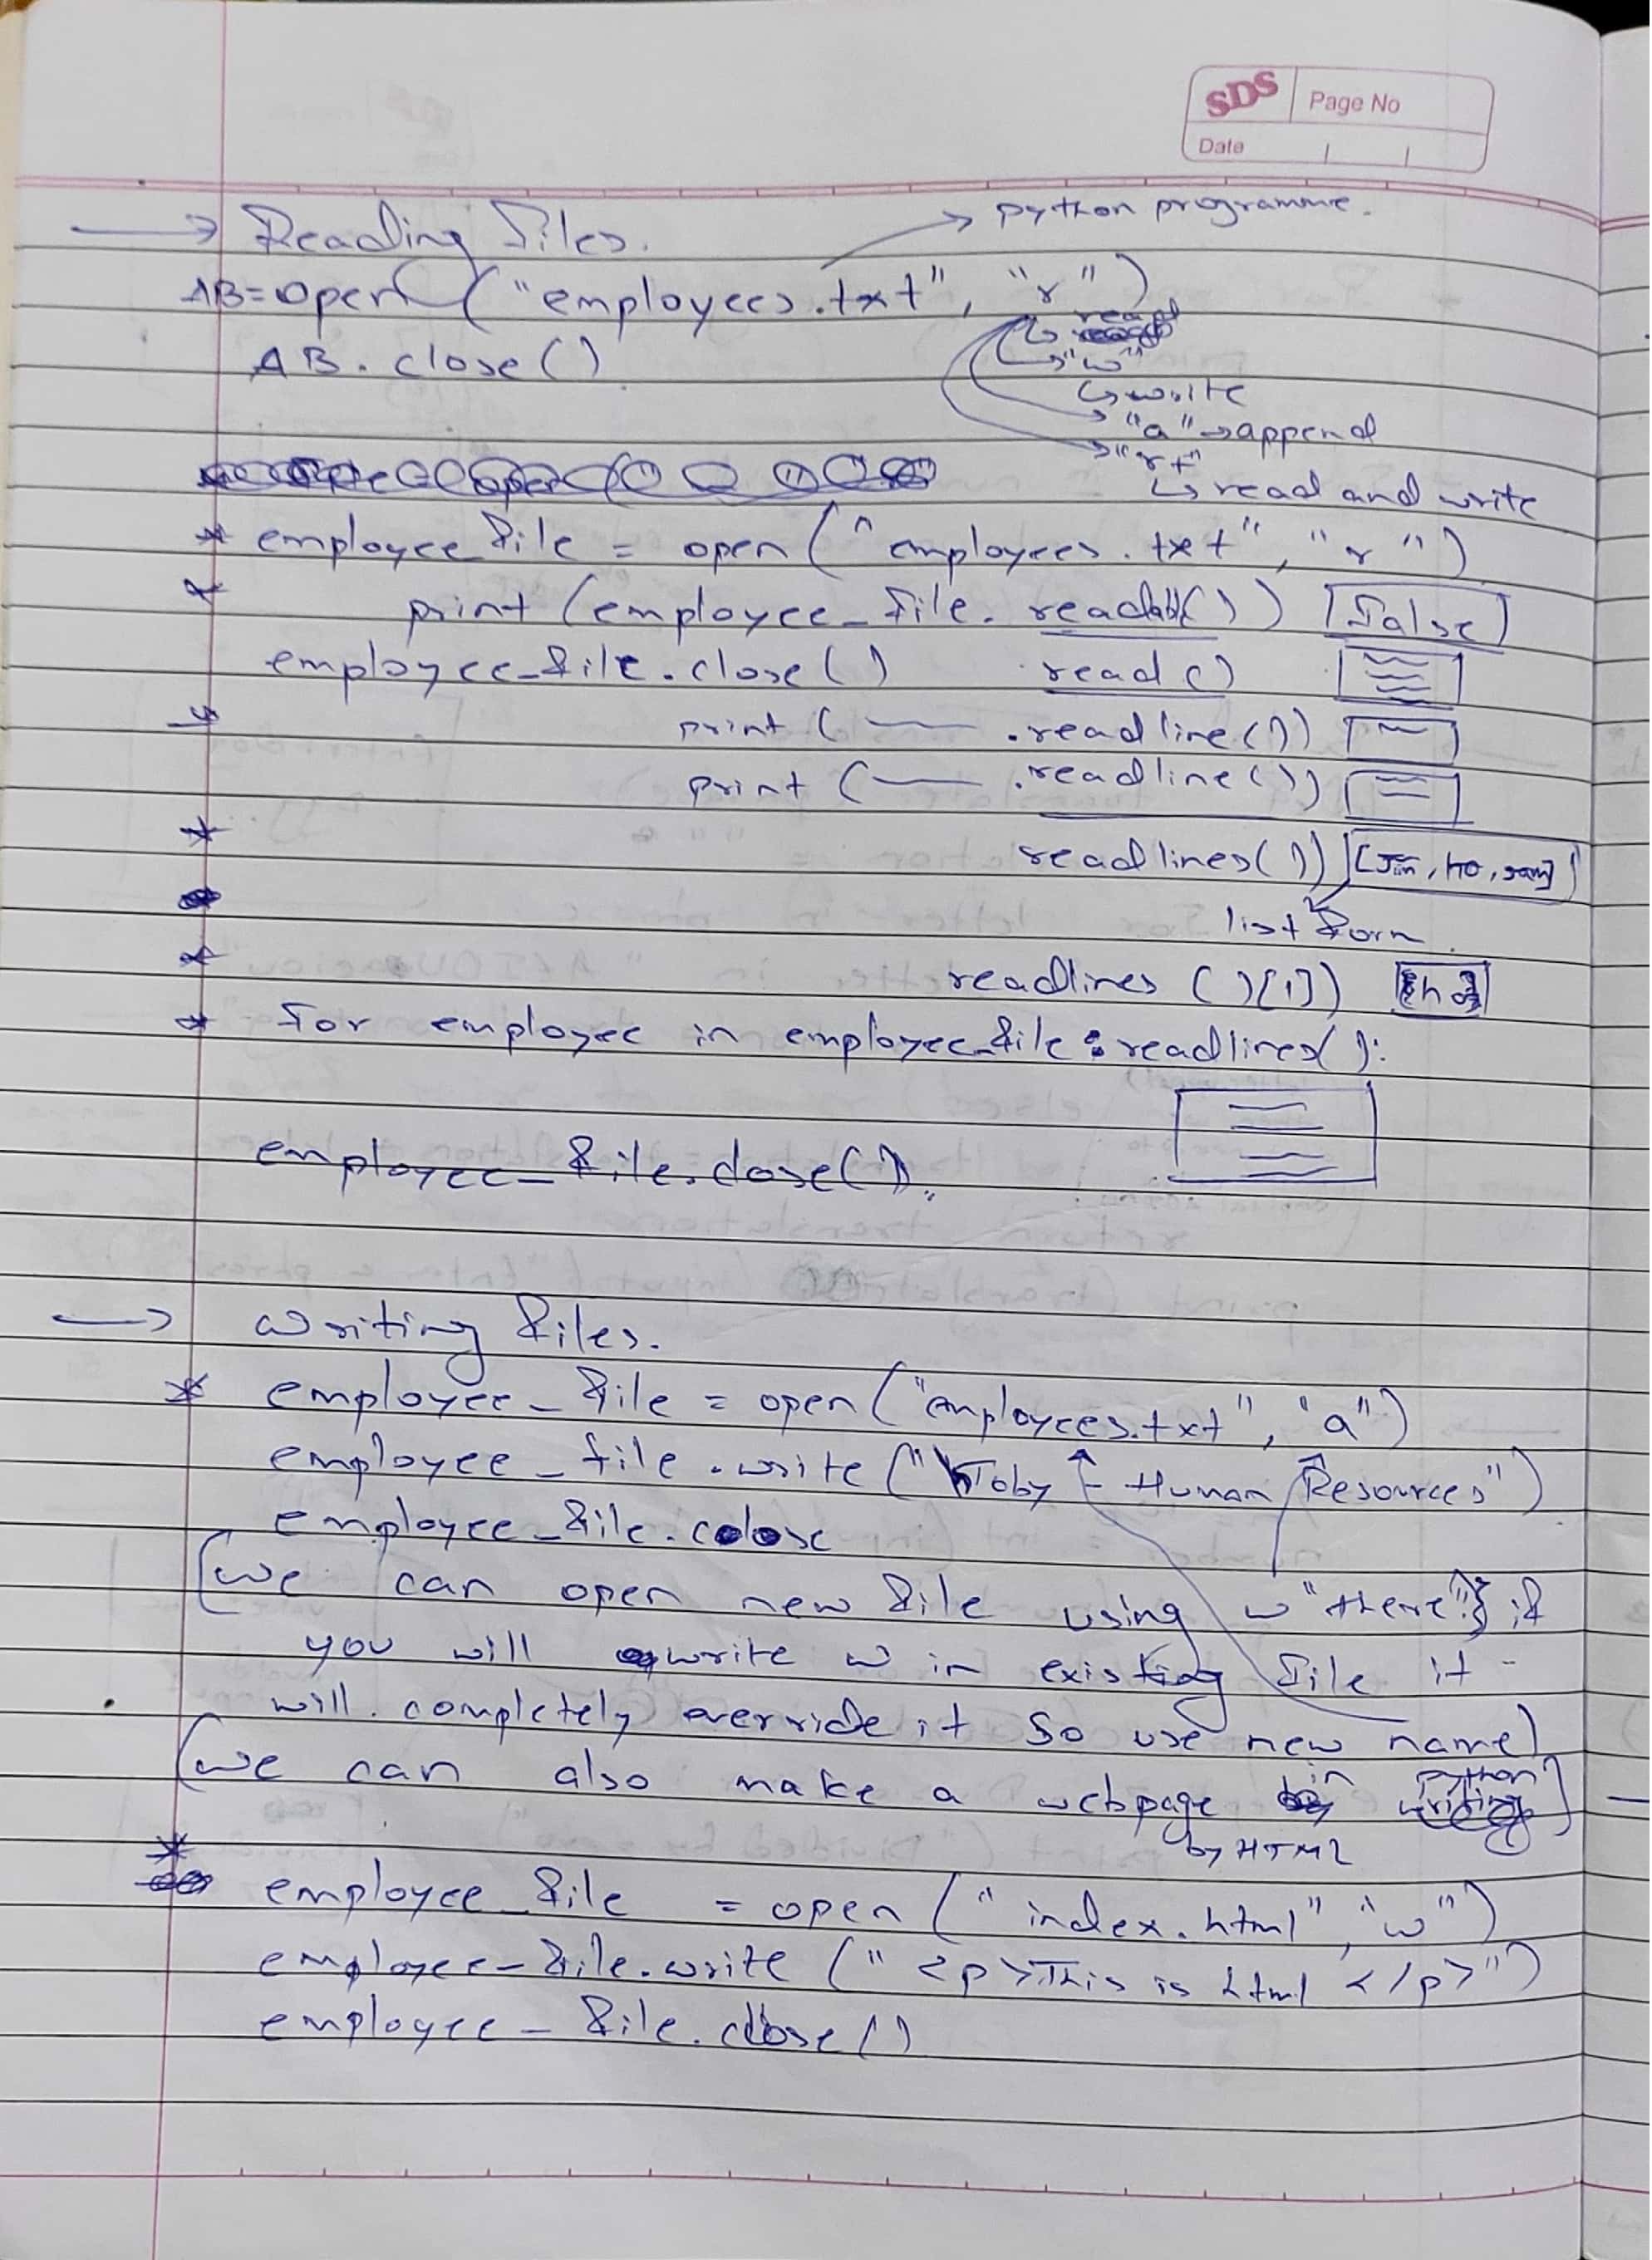 SDS Page No
Date
→ Reading files.
→ python programme.
AB=open("employees.txt", "r")
↳ read
AB.close()
→ "w"
↳ write
→ "a" → append
→ "r+"
↳ read and write
* employee_file = open("employees.txt", "r")
* print(employee_file.readable()) [False]
employee_file.close() read()
* print( — .readline())
print( — .readline())
* readlines()) [Jim, ho, sam]
list form.
* readlines()[1])
* for employee in employee_file.readlines():
employee_file.close().
→ writing files.
* employee_file = open("employees.txt", "a")
employee_file.write("Toby - Human Resources")
employee_file.close
(we can open new file using w "there"} if
you will write w in existing file it
will completely override it so use new name)
(we can also make a webpage in python
by HTML
* employee_file = open("index.html", "w")
employee_file.write("<p>This is html </p>")
employee_file.close()